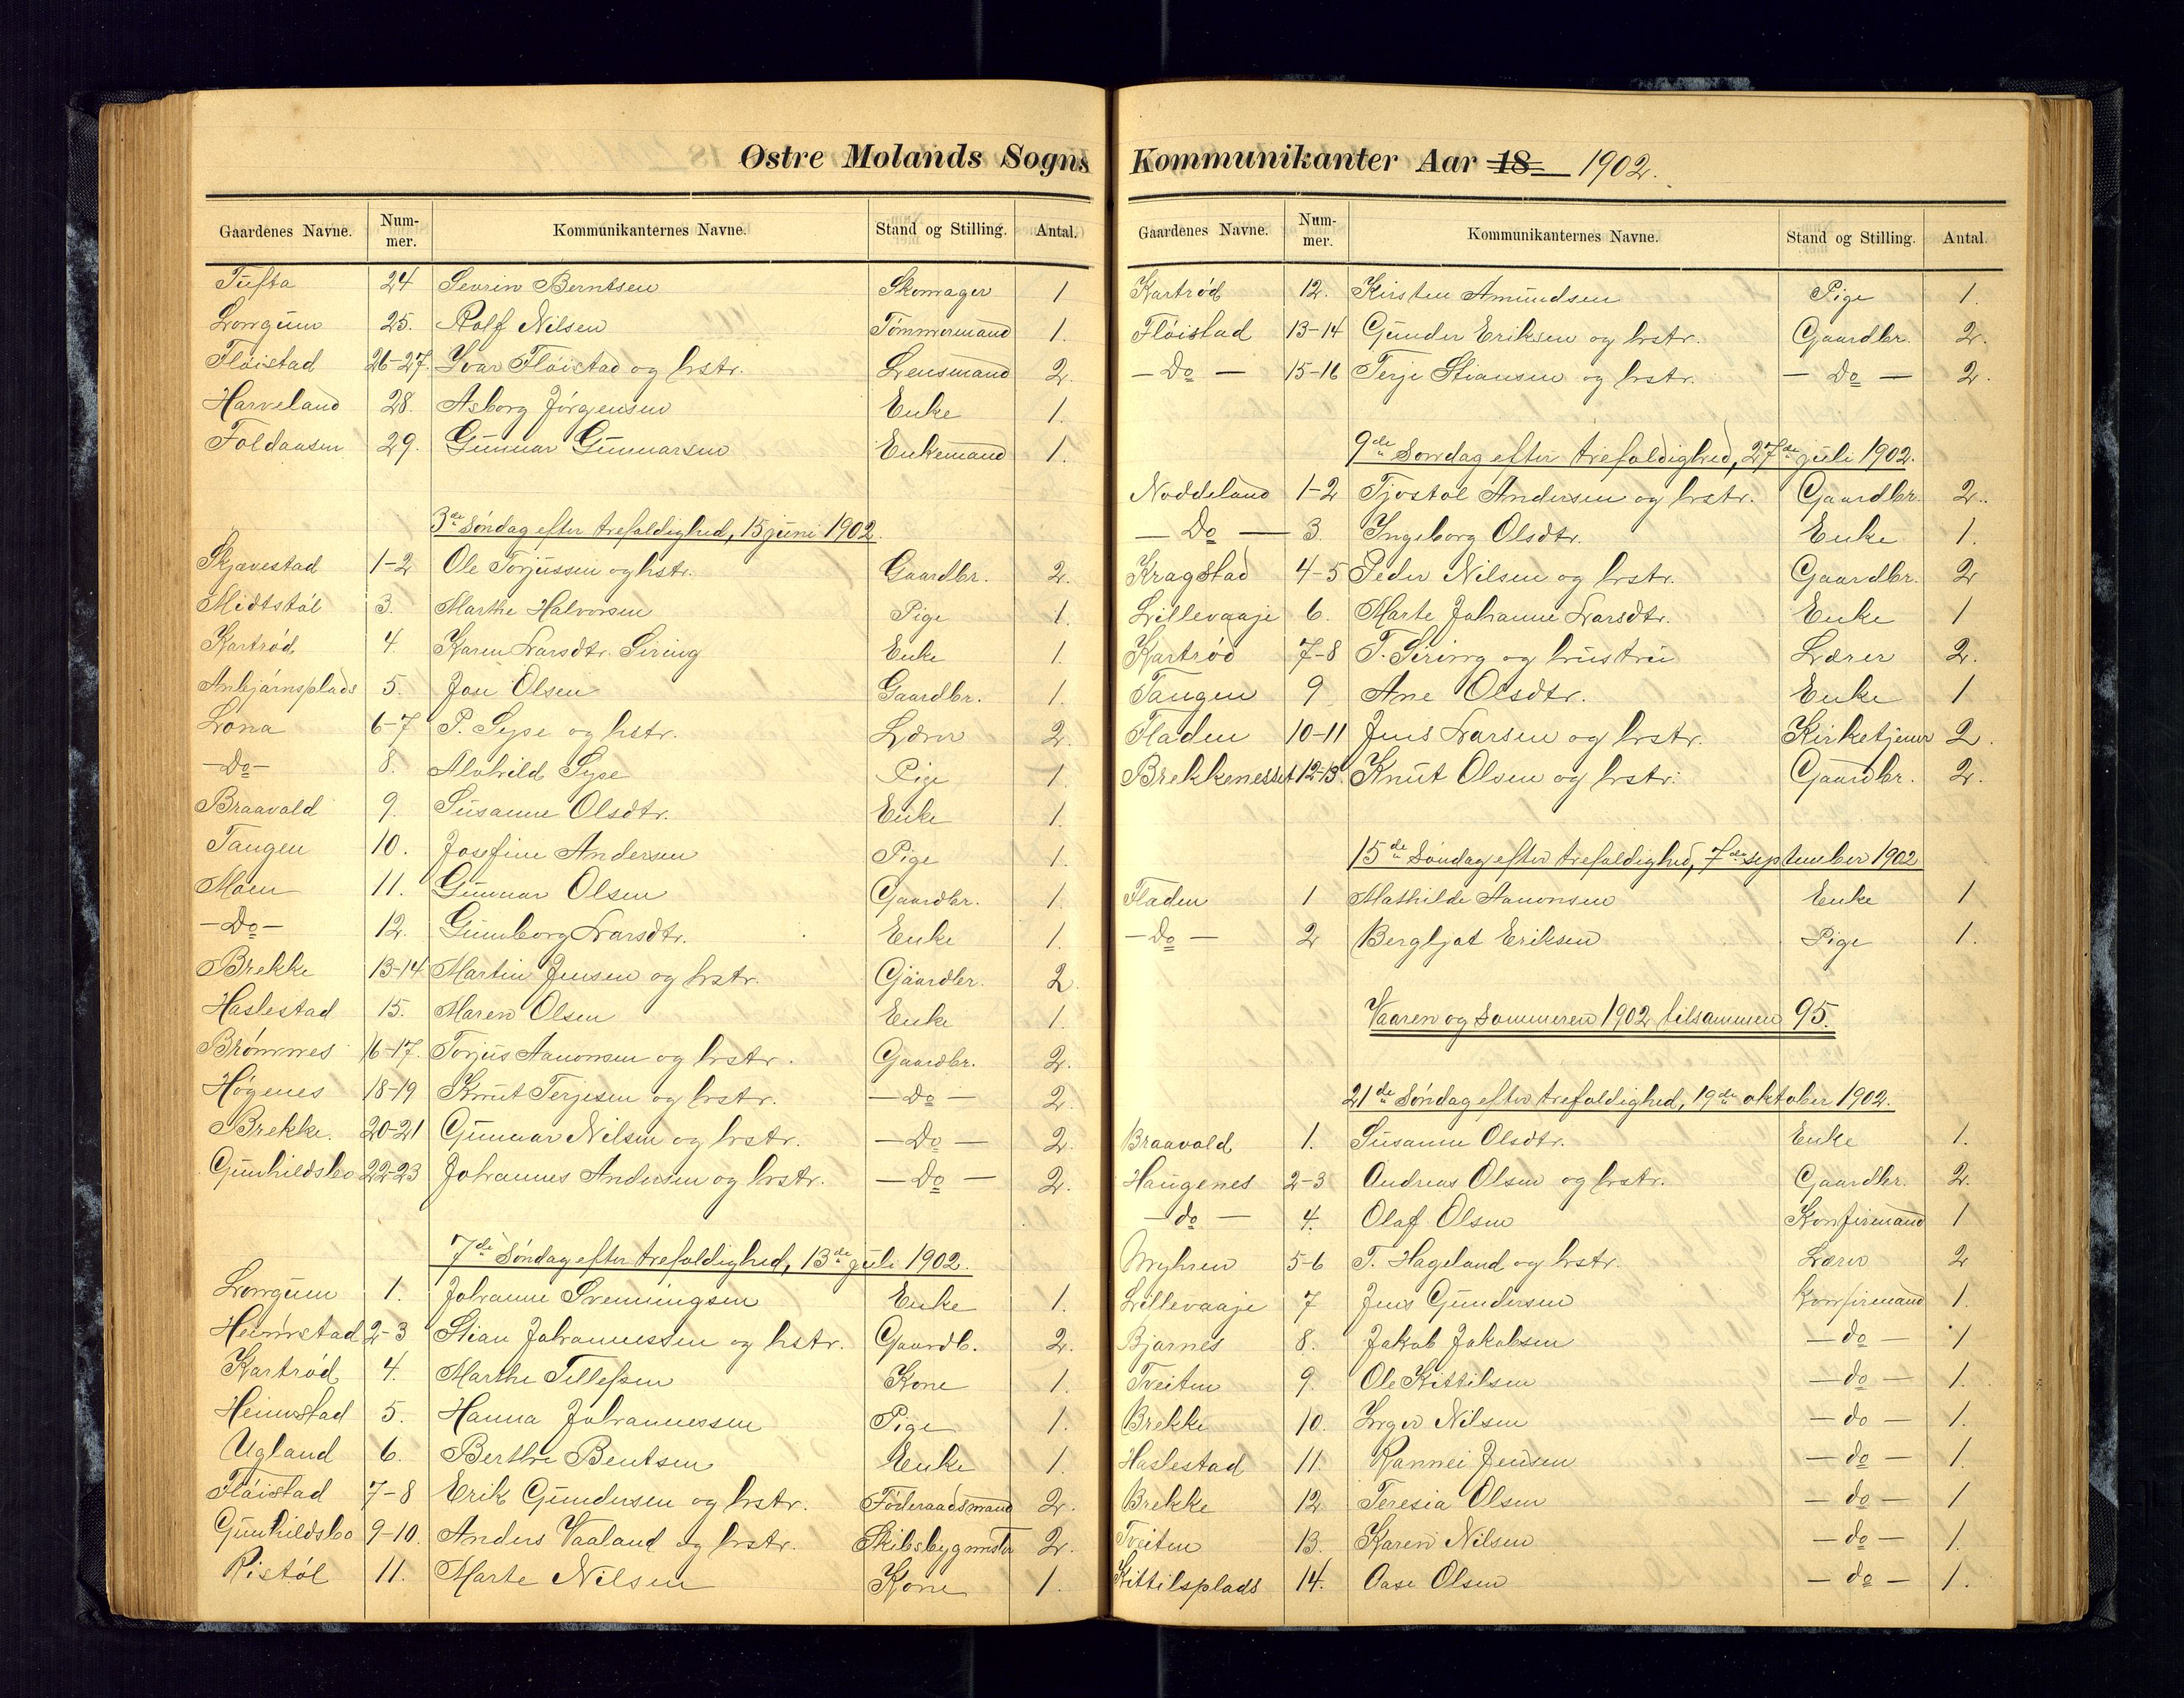 Østre Molands Sogns
Gaardenes Navne. Nummer. Kommunikanternes Navne. Stand og Stilling. Antal.
Tufta 24 Sevrin Berntsen Skomager 1
Longum 25. Rolf Nilsen Tømmermand 1.
Fløistad 26-27. Ivar Fløistad og hstr. Lensmand 2.
Harveland 28. Asborg Jörgensen Enke 1.
Foldaasen 29. Gunnar Gunnarsen Enkemand 1.
3de Søndag efter trefoldighed, 15 juni 1902.
Skjævestad 1-2 Ole Torjussen og hstr. Gaardbr. 2.
Midtstøl 3. Marthe Halvorsen Pige 1.
Kartrød 4. Karen Larsdtr. Siring Enke 1.
Anbjørnsplads 5. Jon Olsen Gaardbr. 1.
Lona 6-7 P. Sype og hstr. Lærer 2.
-Do- 8. Alvhild Sype Pige 1.
Braavold 9. Susanne Olsdtr. Enke 1.
Tangen 10. Josefine Andersen Pige 1.
Moen 11. Gunnar Olsen Gaardbr. 1.
-Do- 12. Gunborg Larsdtr. Enke 1.
Brekke 13-14 Martin Jensen og hstr. Gaardbr. 2.
Haslestad 15. Maren Olsen Enke 1.
Brømnes 16-17. Torjus Aanonsen og hstr. Gaardbr. 2.
Høgenes 18-19 Knut Terjesen og hstr. -Do- 2.
Brekke. 20-21 Gunnar Nilsen og hstr. -Do- 2.
Gunhildsbo 22-23 Johannes Andersen og hstr. -Do- 2.
7de Søndag efter trefoldighed, 13de juli 1902.
Longum 1. Johanne Svenningsen Enke 1.
Heimstad 2-3 Stian Johannessen og hstr. Gaardb. 2.
Kartrød 4. Marthe Tellefsen Kone 1.
Heimstad 5. Hanna Johannessen Pige 1.
Ugland 6. Berthe Bentsen Enke 1.
Fløistad 7-8 Erik Gundersen og hstr. Föderaadsmand 2.
Gunhildsbo 9-10. Anders Vaaland og hstr. Skibsbygmester 2.
Ristøl 11. Marte Nilsen Kone 1.
Kommunikanter Aar 18 1902.
Gaardenes Navne. Nummer. Kommunikanternes Navne. Stand og Stilling. Antal.
Kartrød 12. Kirsten Amundsen Pige 1.
Fløistad 13-14 Gunder Eriksen og hstr. Gaardbr. 2.
-Do- 15-16 Terje Stiansen og hstr. -Do- 2.
9de Søndag efter trefoldighed, 27de juli 1902.
Noddeland 1-2 Tjostøl Andersen og hstr. Gaardbr. 2.
-Do- 3. Ingeborg Olsdtr. Enke 1.
Kragstad 4-5 Peder Nilsen og hstr. Gaardbr. 2
Lillevaaje 6. Marte Johanne Larsdtr. Enke 1
Kartrød 7-8 T. Siring og hustru Lærer 2.
Tangen 9 Ane Olsdtr. Enke 1
Fladen 10-11 Jens Larsen og hstr. Kirketjener 2.
Brekkenesset 12-13. Knut Olsen og hstr. Gaardbr. 2.
15de Søndag efter trefoldighed, 7de september 1902
Fladen 1 Mathilde Aanonsen Enke 1
-Do- 2 Bergljot Eriksen Pige 1.
Vaaren og Sommeren 1902 tilsammen 95.
21de Søndag efter trefoldighed, 19de oktober 1902.
Braavold 1. Susanne Olsdtr. Enke 1.
Haugenes 2-3 Andreas Olsen og hstr. Gaardbr. 2.
-do- 4. Olaf Olsen Konfirmand 1
Myhren 5-6 T. Hageland og hstr. Lærer 2
Lillevaaje 7 Jens Gundersen Konfirmand 1.
Bjørnes 8. Jakob Jakobsen -do- 1
Tveiten 9. Ole Kittilsen -do- 1.
Brekke 10. Inger Nilsen -do- 1.
Haslestad 11. Rannei Jensen -do- 1.
Brekke 12 Teresia Olsen -do- 1
Tveiten 13. Karen Nilsen -do- 1.
Kittilsplads 14. Oase Olsen -do- 1.